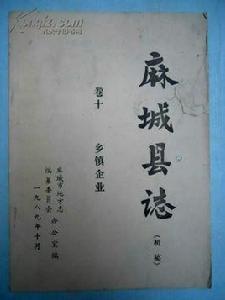 麻城县誌
（初稿）
卷十 乡镇企业
麻城市地方志
编纂委员会
办公室编
一九八九年十月